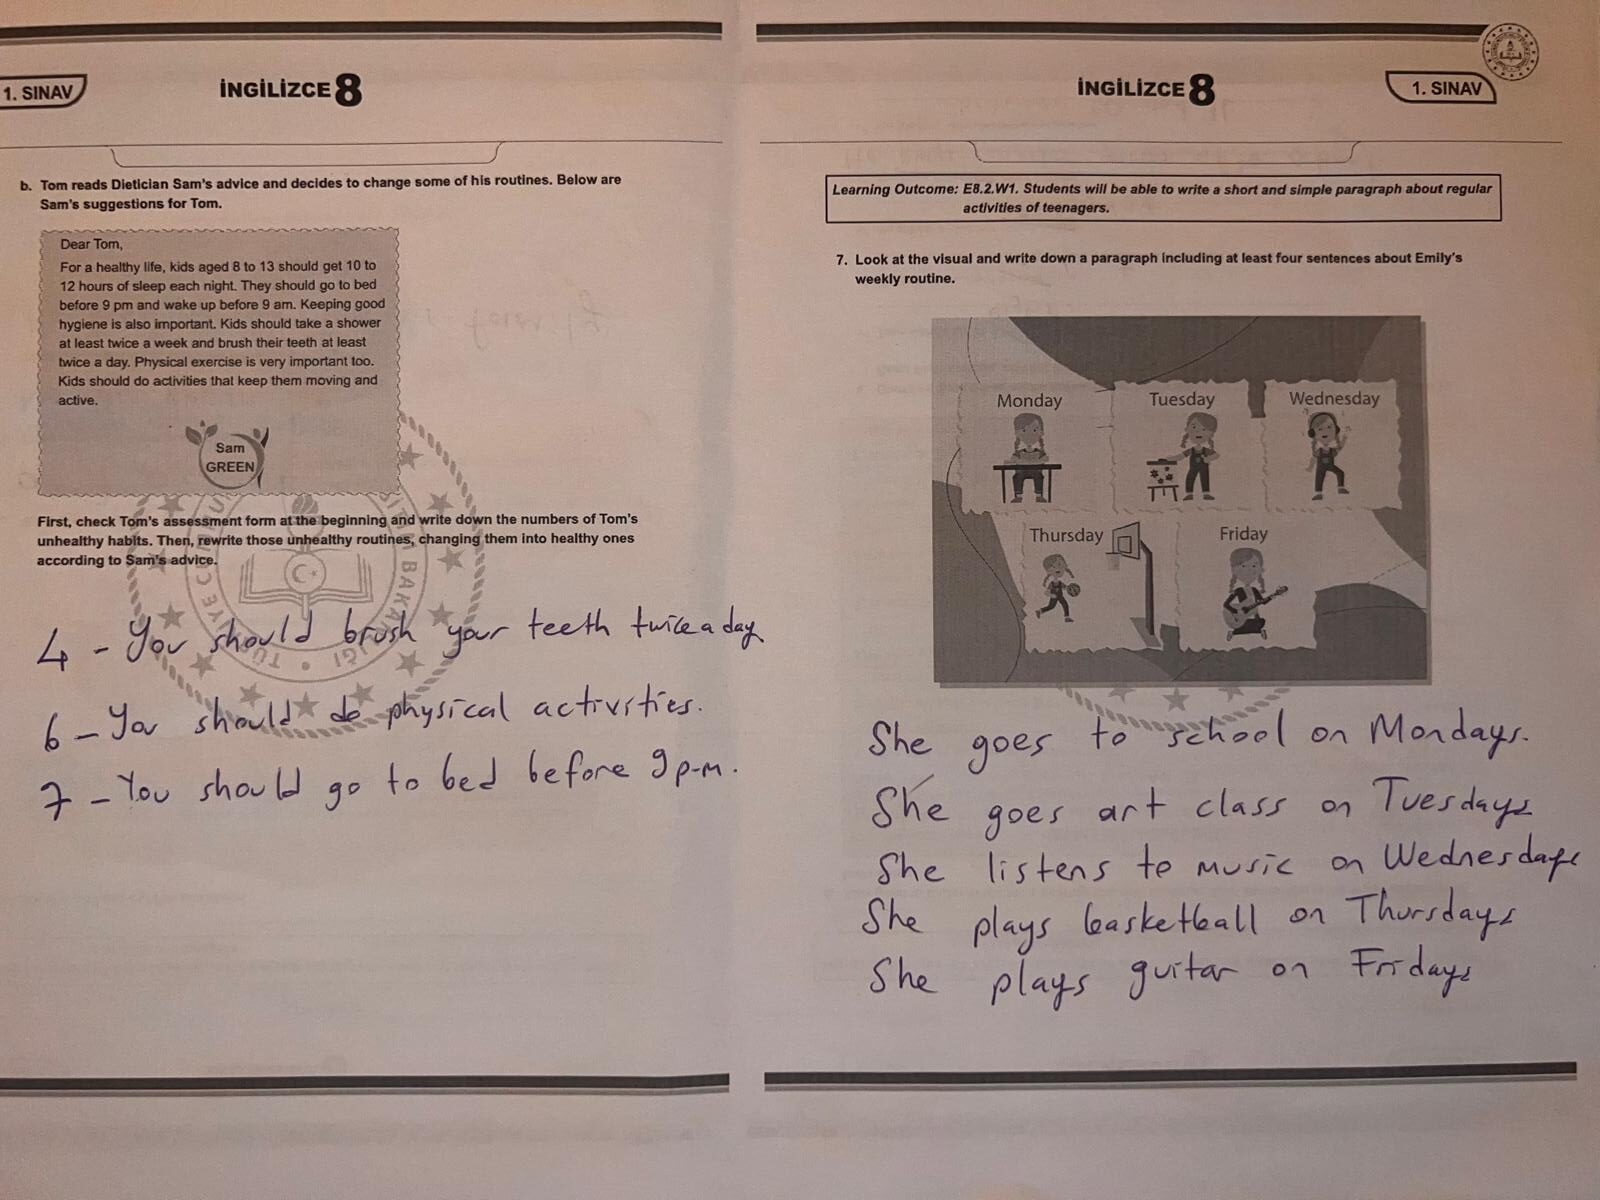 1. SINAV
İNGİLİZCE 8
b. Tom reads Dietician Sam's advice and decides to change some of his routines. Below are
Sam's suggestions for Tom.
Dear Tom,
For a healthy life, kids aged 8 to 13 should get 10 to
12 hours of sleep each night. They should go to bed
before 9 pm and wake up before 9 am. Keeping good
hygiene is also important. Kids should take a shower
at least twice a week and brush their teeth at least
twice a day. Physical exercise is very important too.
Kids should do activities that keep them moving and
active.
Sam
GREEN
First, check Tom's assessment form at the beginning and write down the numbers of Tom's
unhealthy habits. Then, rewrite those unhealthy routines, changing them into healthy ones
according to Sam's advice.
4 - You should brush your teeth twice a day
6 - You should do physical activities.
7 - You should go to bed before 9 p.m.
İNGİLİZCE 8
1. SINAV
Learning Outcome: E8.2.W1. Students will be able to write a short and simple paragraph about regular
activities of teenagers.
7. Look at the visual and write down a paragraph including at least four sentences about Emily's
weekly routine.
Monday
Tuesday
Wednesday
Thursday
Friday
She goes to school on Mondays.
She goes art class on Tuesdays
She listens to music on Wednesdays
She plays basketball on Thursdays
She plays guitar on Fridays